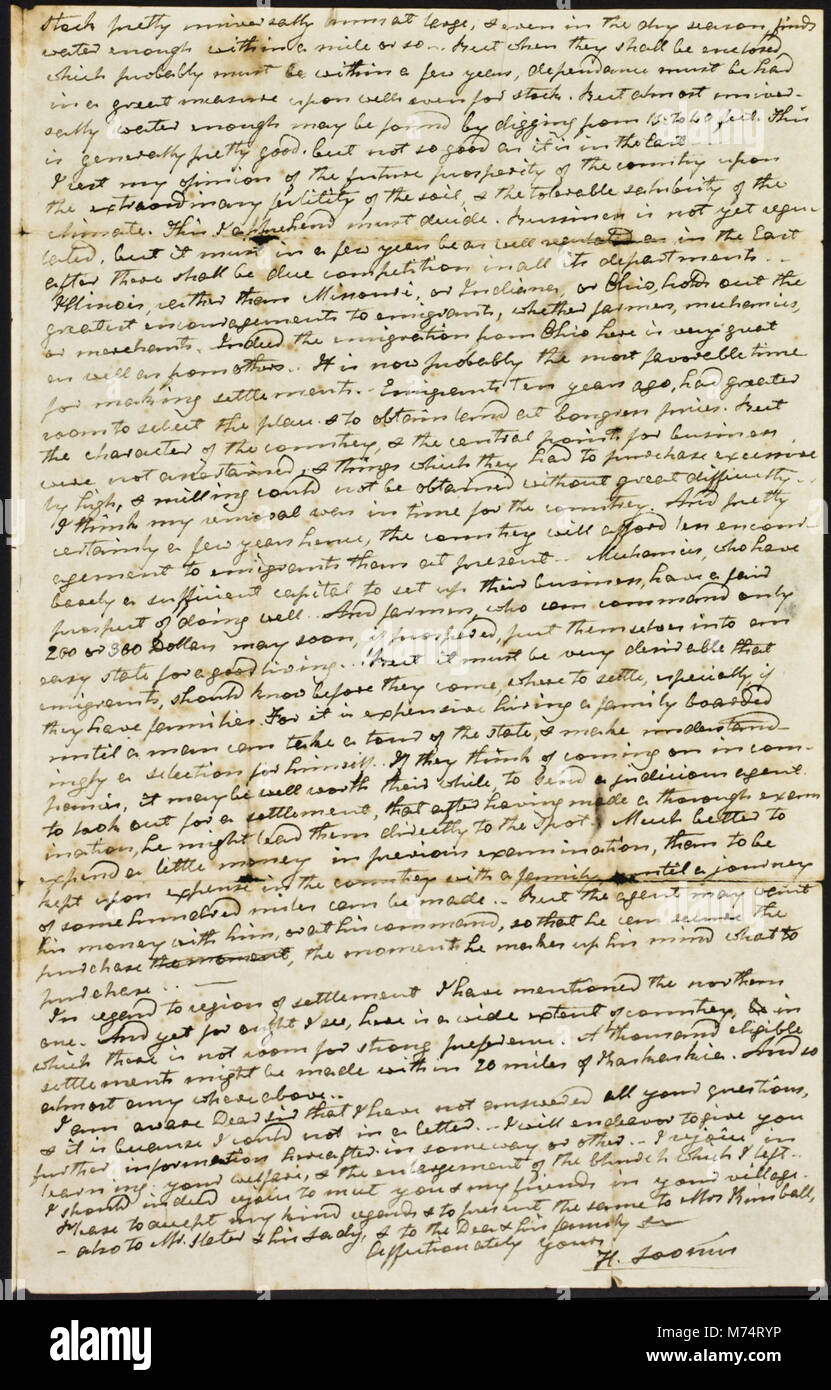 stock pretty universally runs at large, & even in the dry season, finds
water enough within a mile or so. - But when they shall be enclosed,
which probably must be within a few years, dependance must be had
in a great measure upon wells even for stock. But almost univer-
sally water enough may be found by digging from 15 to 40 feet. This
is generally pretty good, but not so good as it is in the East.
I rest my opinion of the future prosperity of the country upon
the extraordinary fertility of the soil, & the tolerable salubrity of the
climate. This I apprehend must decide. Business is not yet regu-
lated, but it must in a few years be as well regulated as in the East
after there shall be due competition in all its departments. -
Illinois, rather than Missouri, or Indiana, or Ohio, holds out the
greatest encouragements to emigrants, whether farmers, mechanics,
or merchants. Indeed the emigration from Ohio here is very great
as well as from others. - It is now probably the most favorable time
for making settlements. - Emigrants ten years ago, had greater
room to select the place & to obtain land at Congress prices. But
the character of the country, & the central points for business
were not ascertained, & things which they had to purchase excessive
ly high, & milling could not be obtained without great difficulty. -
I think my removal was in time for the country. And pretty
certainly a few years hence, the country will afford less encour-
agement to emigrants than at present. - Mechanics, who have
barely a sufficient capital to set up their business, have a fair
prospect of doing well. And farmers, who can command only
200 or 300 Dollars may soon, if prospered, put themselves into an
easy state for a good living. - But it must be very desirable that
emigrants, should know before they come, where to settle, especially if
they have families. For it is expensive hiring a family boarded
until a man can take a tour of the state, & make understand-
ingly a selection for himself. If they think of coming on in com-
panies, it may be well worth their while to send a judicious agent
to look out for a settlement, that after having made a thorough exam
ination, he might lead them directly to the spot. Much better to
expend a little money in previous examination, than to be
kept upon expense in the country with a family until a journey
of some hundred miles can be made. - But the agent may want
his money with him, or at his command, so that he can secure the
purchase the moment, the moment he makes up his mind what to
purchase. -
In regard to region of settlement I have mentioned the northern
one. And yet for aught I see, here is a wide extent of country, in
which there is not room for strong preference. A thousand eligible
settlements might be made within 20 miles of Kaskaskia. And so
almost any where above. -
I am aware Dear sir that I have not answered all your questions,
& it is because I could not in a letter. - I will endeavor to give you
further information hereafter in some way or other. - I rejoice in
learning your welfare, & the enlargement of the Church which I left. -
I should indeed rejoice to meet you & my friends in your village.
Please to accept my kind regards & to present the same to Mrs Kimball,
- also to Mr. Slater & his Lady, & to the Dea & his family
Affectionately yours
H. Loomis
alamy
Image ID: M74RYP
www.alamy.com